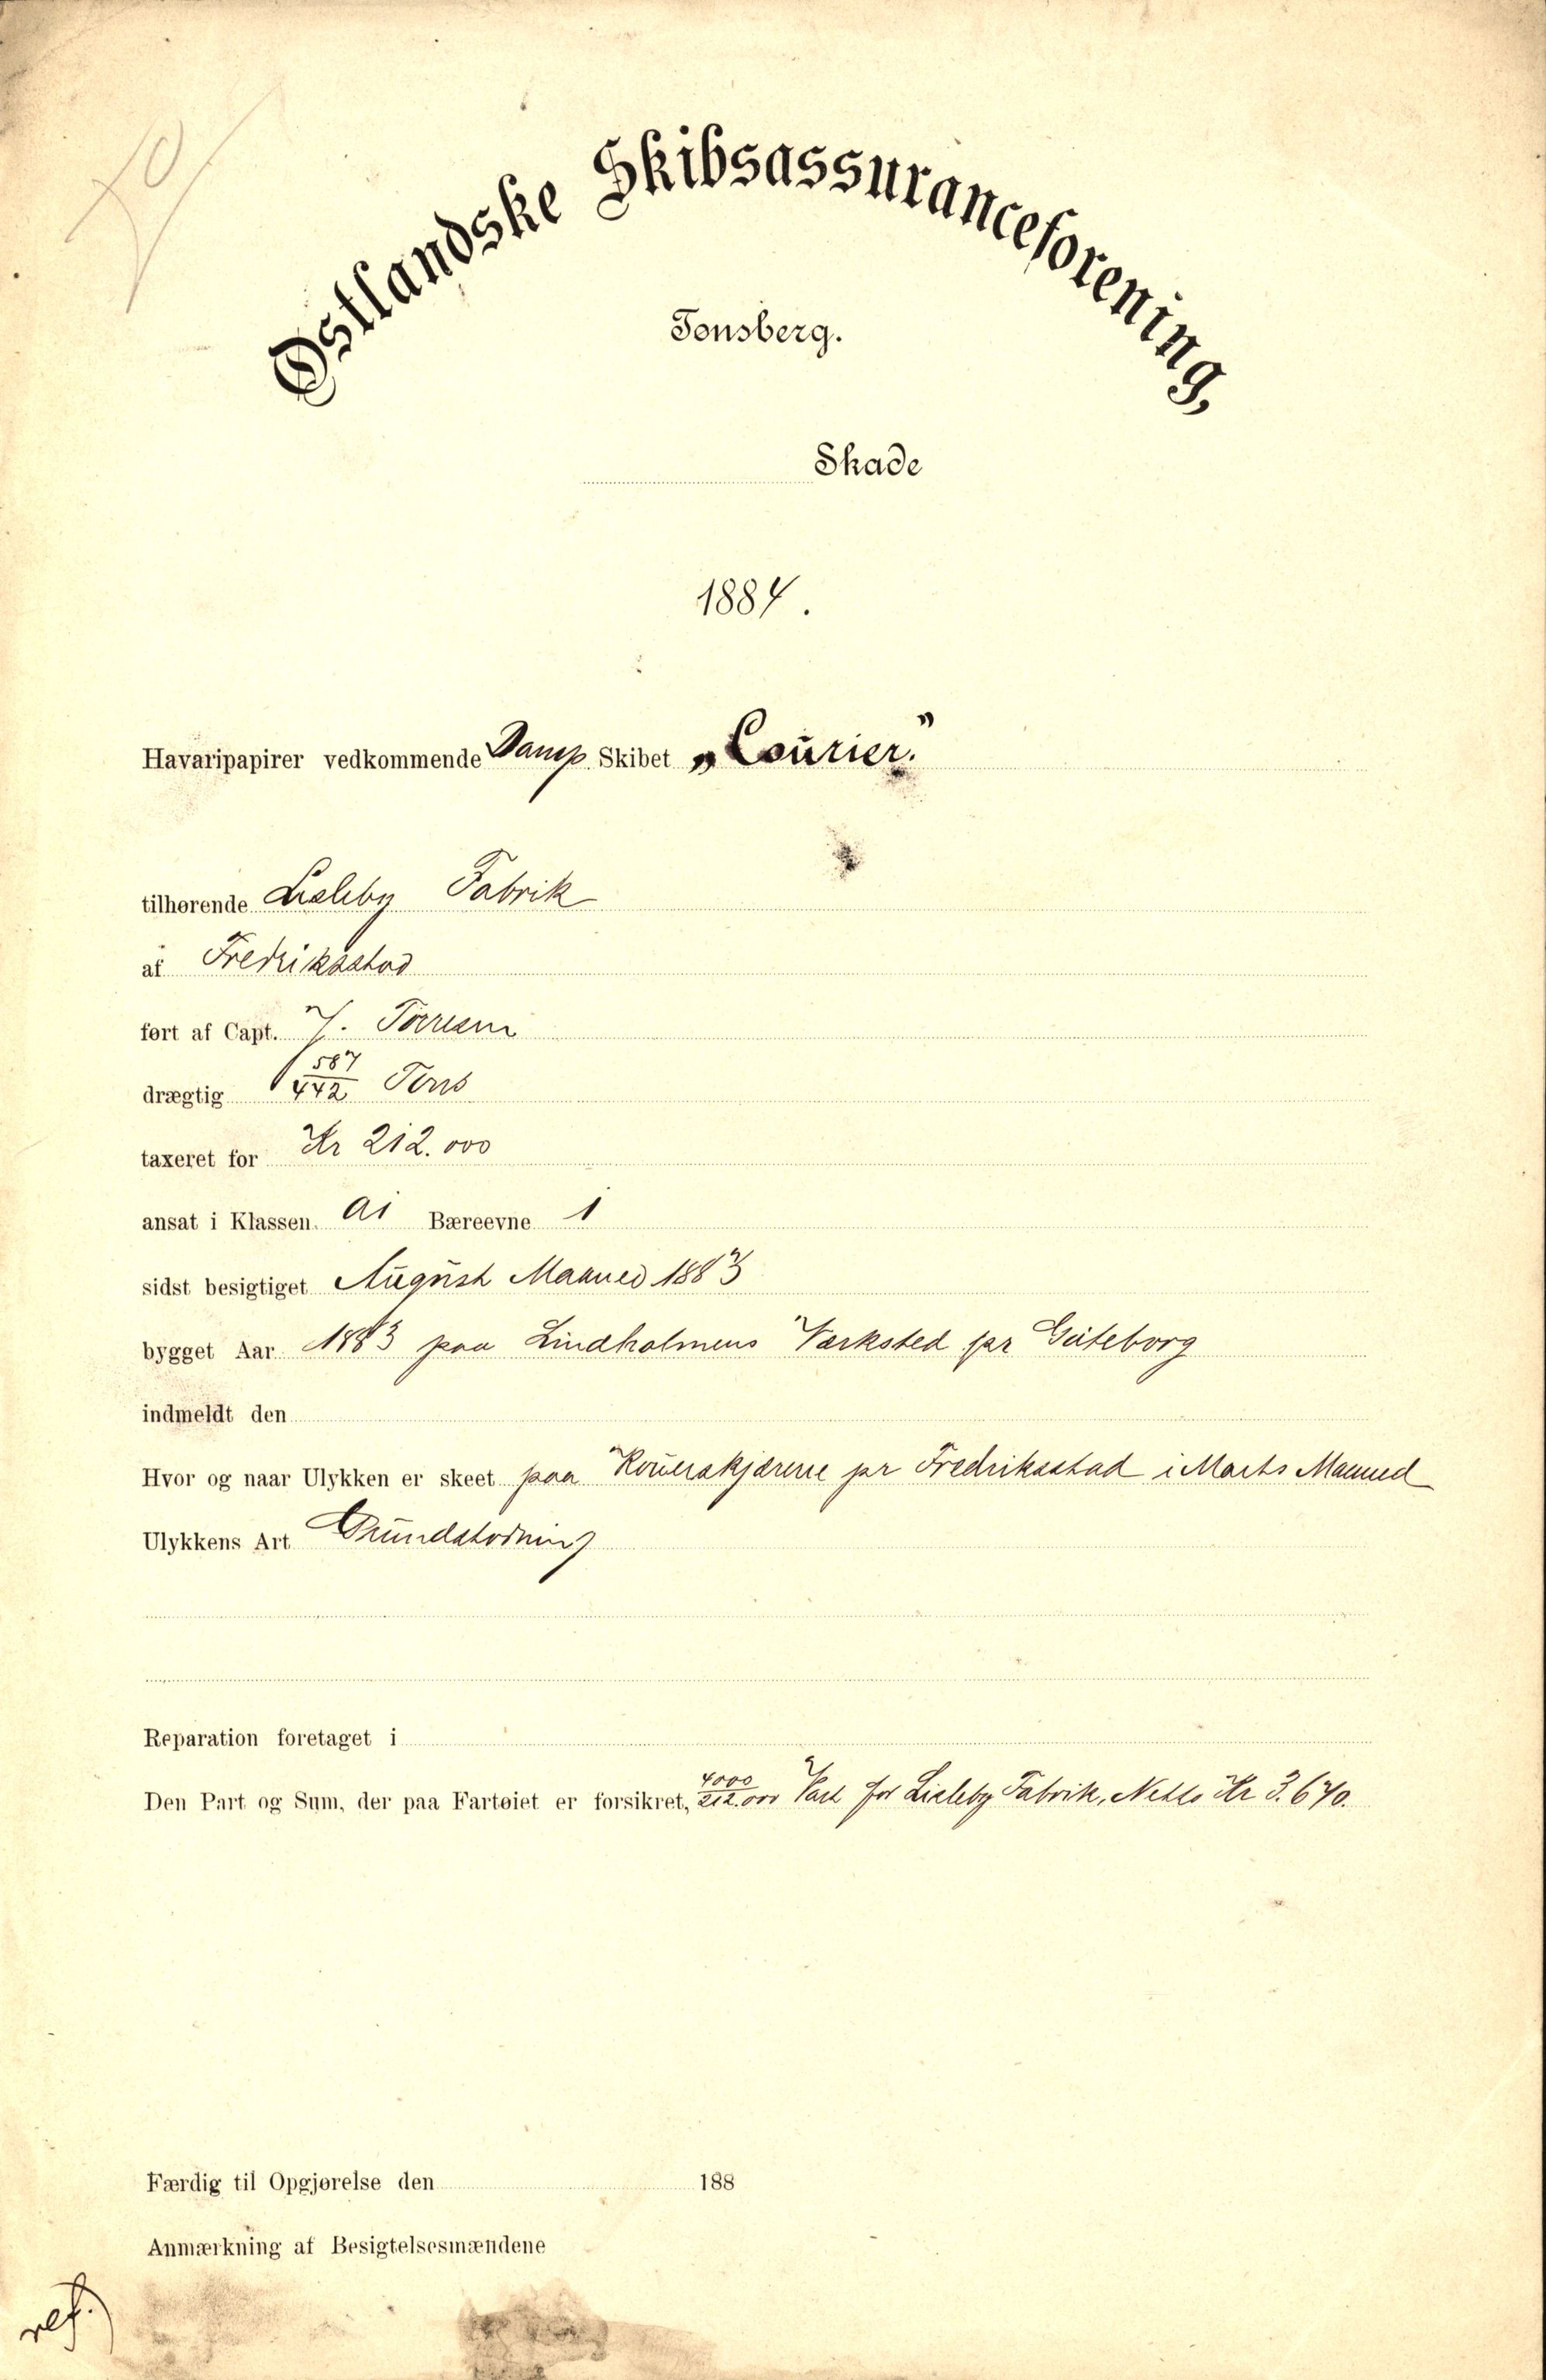 10
Østlandske Skibsassuranceforening,
Tønsberg.
Skade
1884.
Havaripapirer vedkommende Damp Skibet „Courier.”
tilhørende Lisleby Fabrik
af Fredriksstad
ført af Capt. J. Torresen
drægtig 587/442 Tons
taxeret for Kr 212.000
ansat i Klassen A1 Bæreevne 1
sidst besigtiget August Maaned 1883
bygget Aar 1883 paa Lindholmens Værksted pr Göteborg
indmeldt den
Hvor og naar Ulykken er skeet paa pr Fredriksstad i Marts Maaned
Ulykkens Art Grundstødning
Reparation foretaget i
Den Part og Sum, der paa Fartøiet er forsikret, 4000/212.000 Part for Lisleby Fabrik, Netto Kr 3.640.
Færdig til Opgjørelse den 188
Anmærkning af Besigtelsesmændene
ref.)